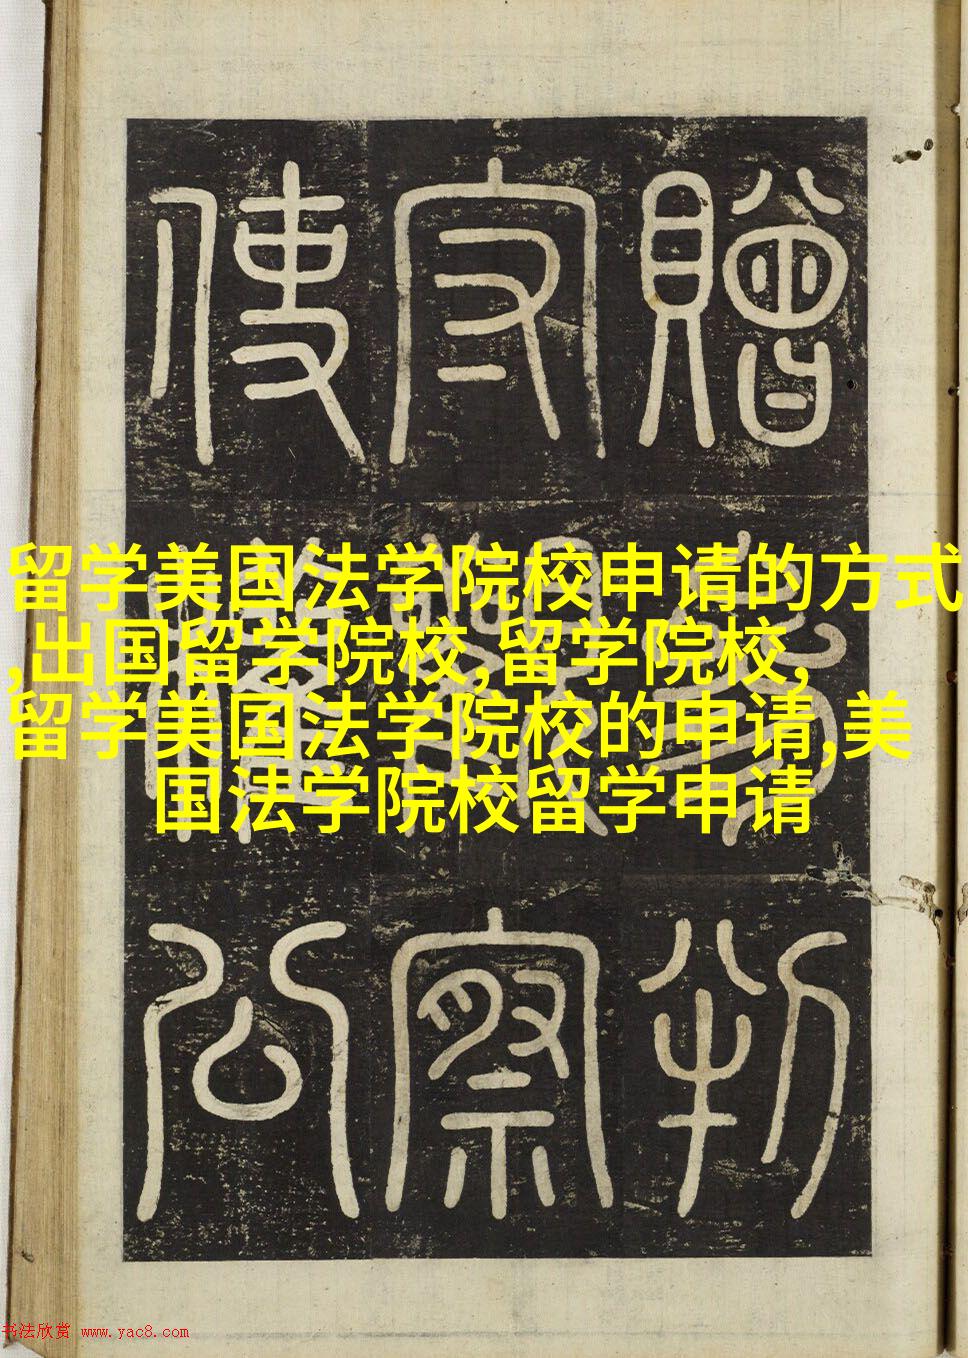 贈判
察
使公
留学美国法学院校申请的方式
,出国留学院校,留学院校,
留学美国法学院校的申请,美
国法学院校留学申请
书法欣赏 www.yac8.com